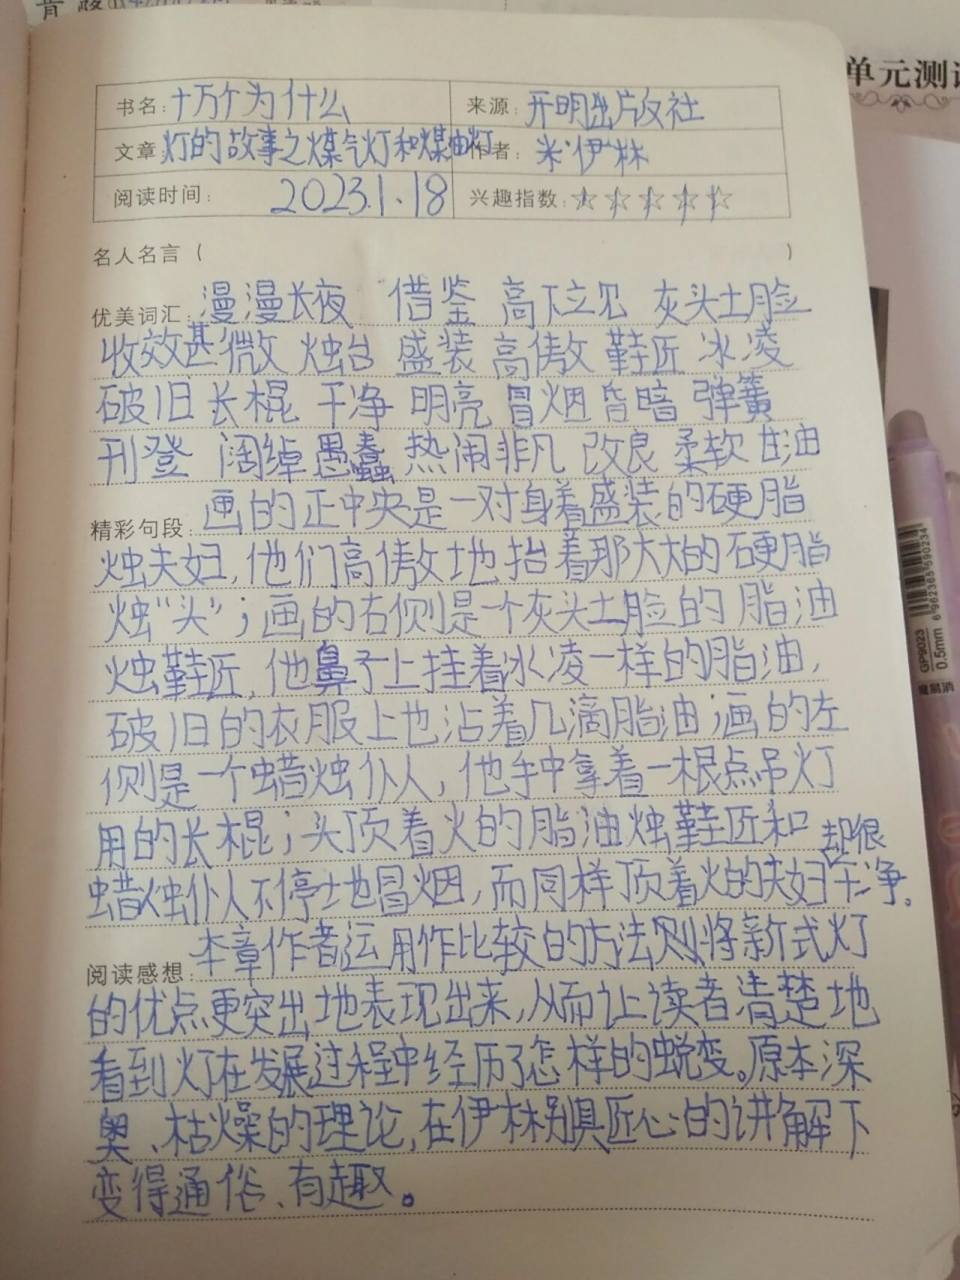 单元测试
书名:十万个为什么 来源:开明出版社
文章:灯的故事之煤气灯和煤油灯 作者:米·伊林
阅读时间: 2023.1.18 兴趣指数:☆☆☆☆☆
名人名言 ( )
优美词汇:漫漫长夜 借鉴 高下立见 灰头土脸
收效甚微 烛台 盛装 高傲 鞋匠 冰凌
破旧 长棍 干净 明亮 冒烟 昏暗 弹簧
刊登 阔绰 愚蠢 热闹非凡 改良 柔软 甘油
精彩句段: 画的正中央是一对身着盛装的硬脂
烛夫妇,他们高傲地抬着那大大的硬脂
烛"头";画的右侧是一个灰头土脸的脂油
烛鞋匠,他鼻子上挂着冰凌一样的脂油,
破旧的衣服上也沾着几滴脂油;画的左
侧是一个蜡烛仆人,他手中拿着一根点吊灯
用的长棍;头顶着火的脂油烛鞋匠和
蜡烛仆人不停土地冒烟,而同样顶着火的夫妇却很干净。
阅读感想: 本章作者运用作比较的方法则将新式灯
的优点更突出地表现出来,从而让读者清楚地
看到灯在发展过程中经历了怎样的蜕变。原本深
奥、枯燥的理论,在伊林别具匠心的讲解下
变得通俗、有趣。
GP9023
0.5mm
魔易消
6962363590234